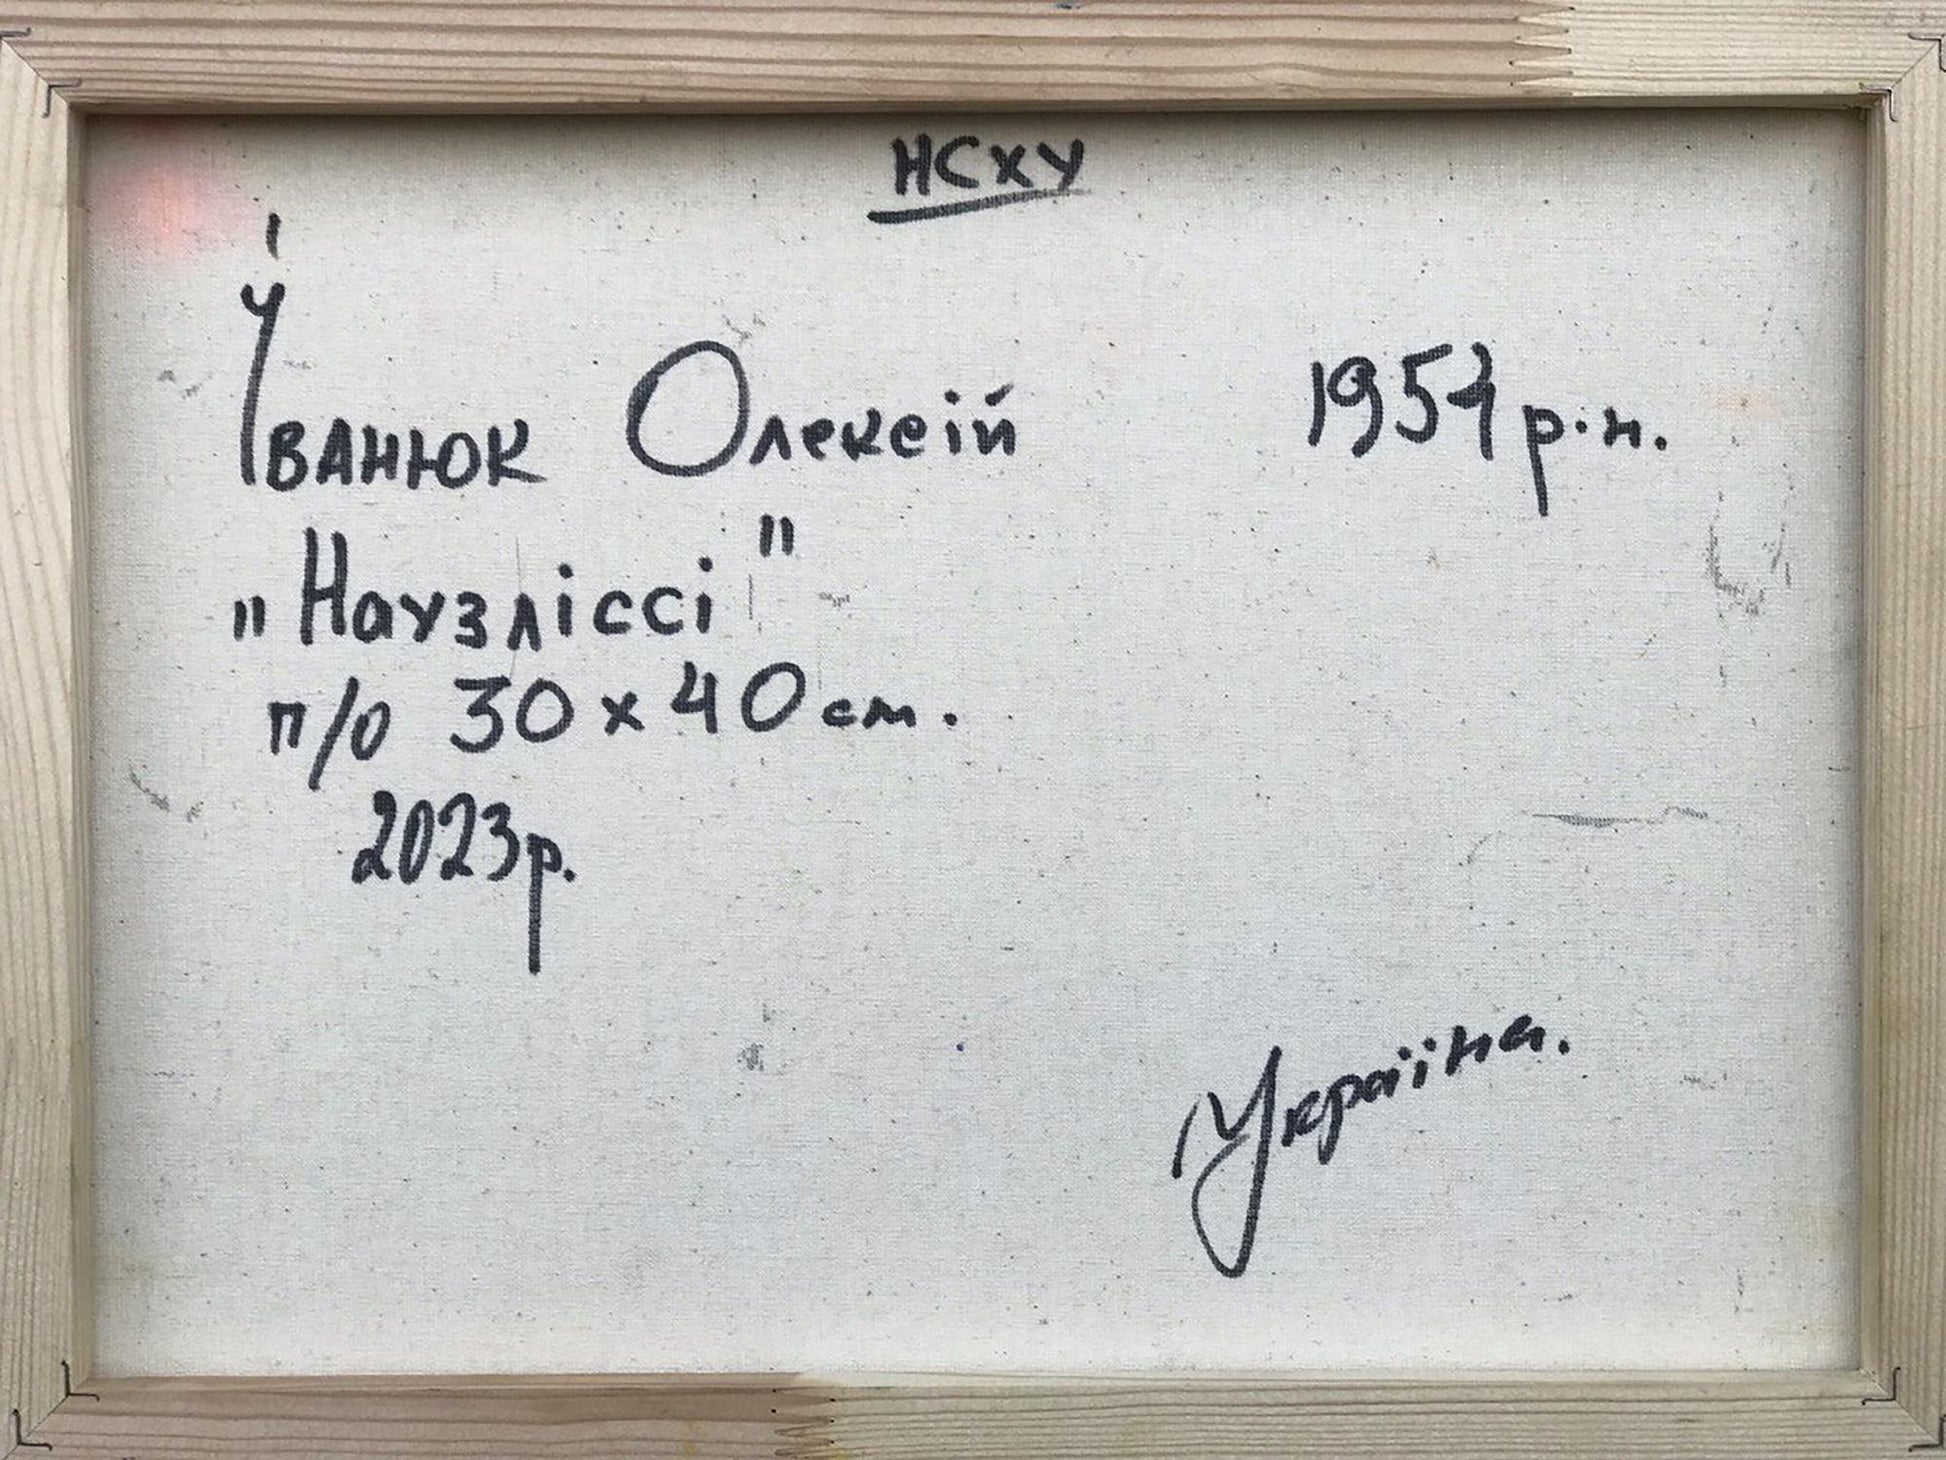 НСХУ
Іванюк Олексій 1954 р.н.
"Наузліссі"
п/о 30х40 см.
2023р.
Україна.